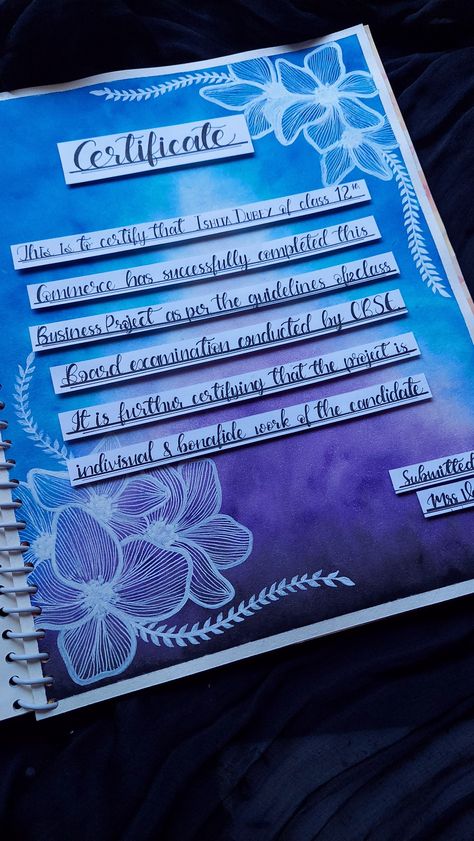 Certificate
This is to certify that Ishita Dubey of class 12th
Commerce has successfully completed this
Business Project as per the guidelines of class
Board examination conducted by CBSE.
It is furthur certifying that the project is
indivisual & bonafide work of the candidate
Submitted
Mss